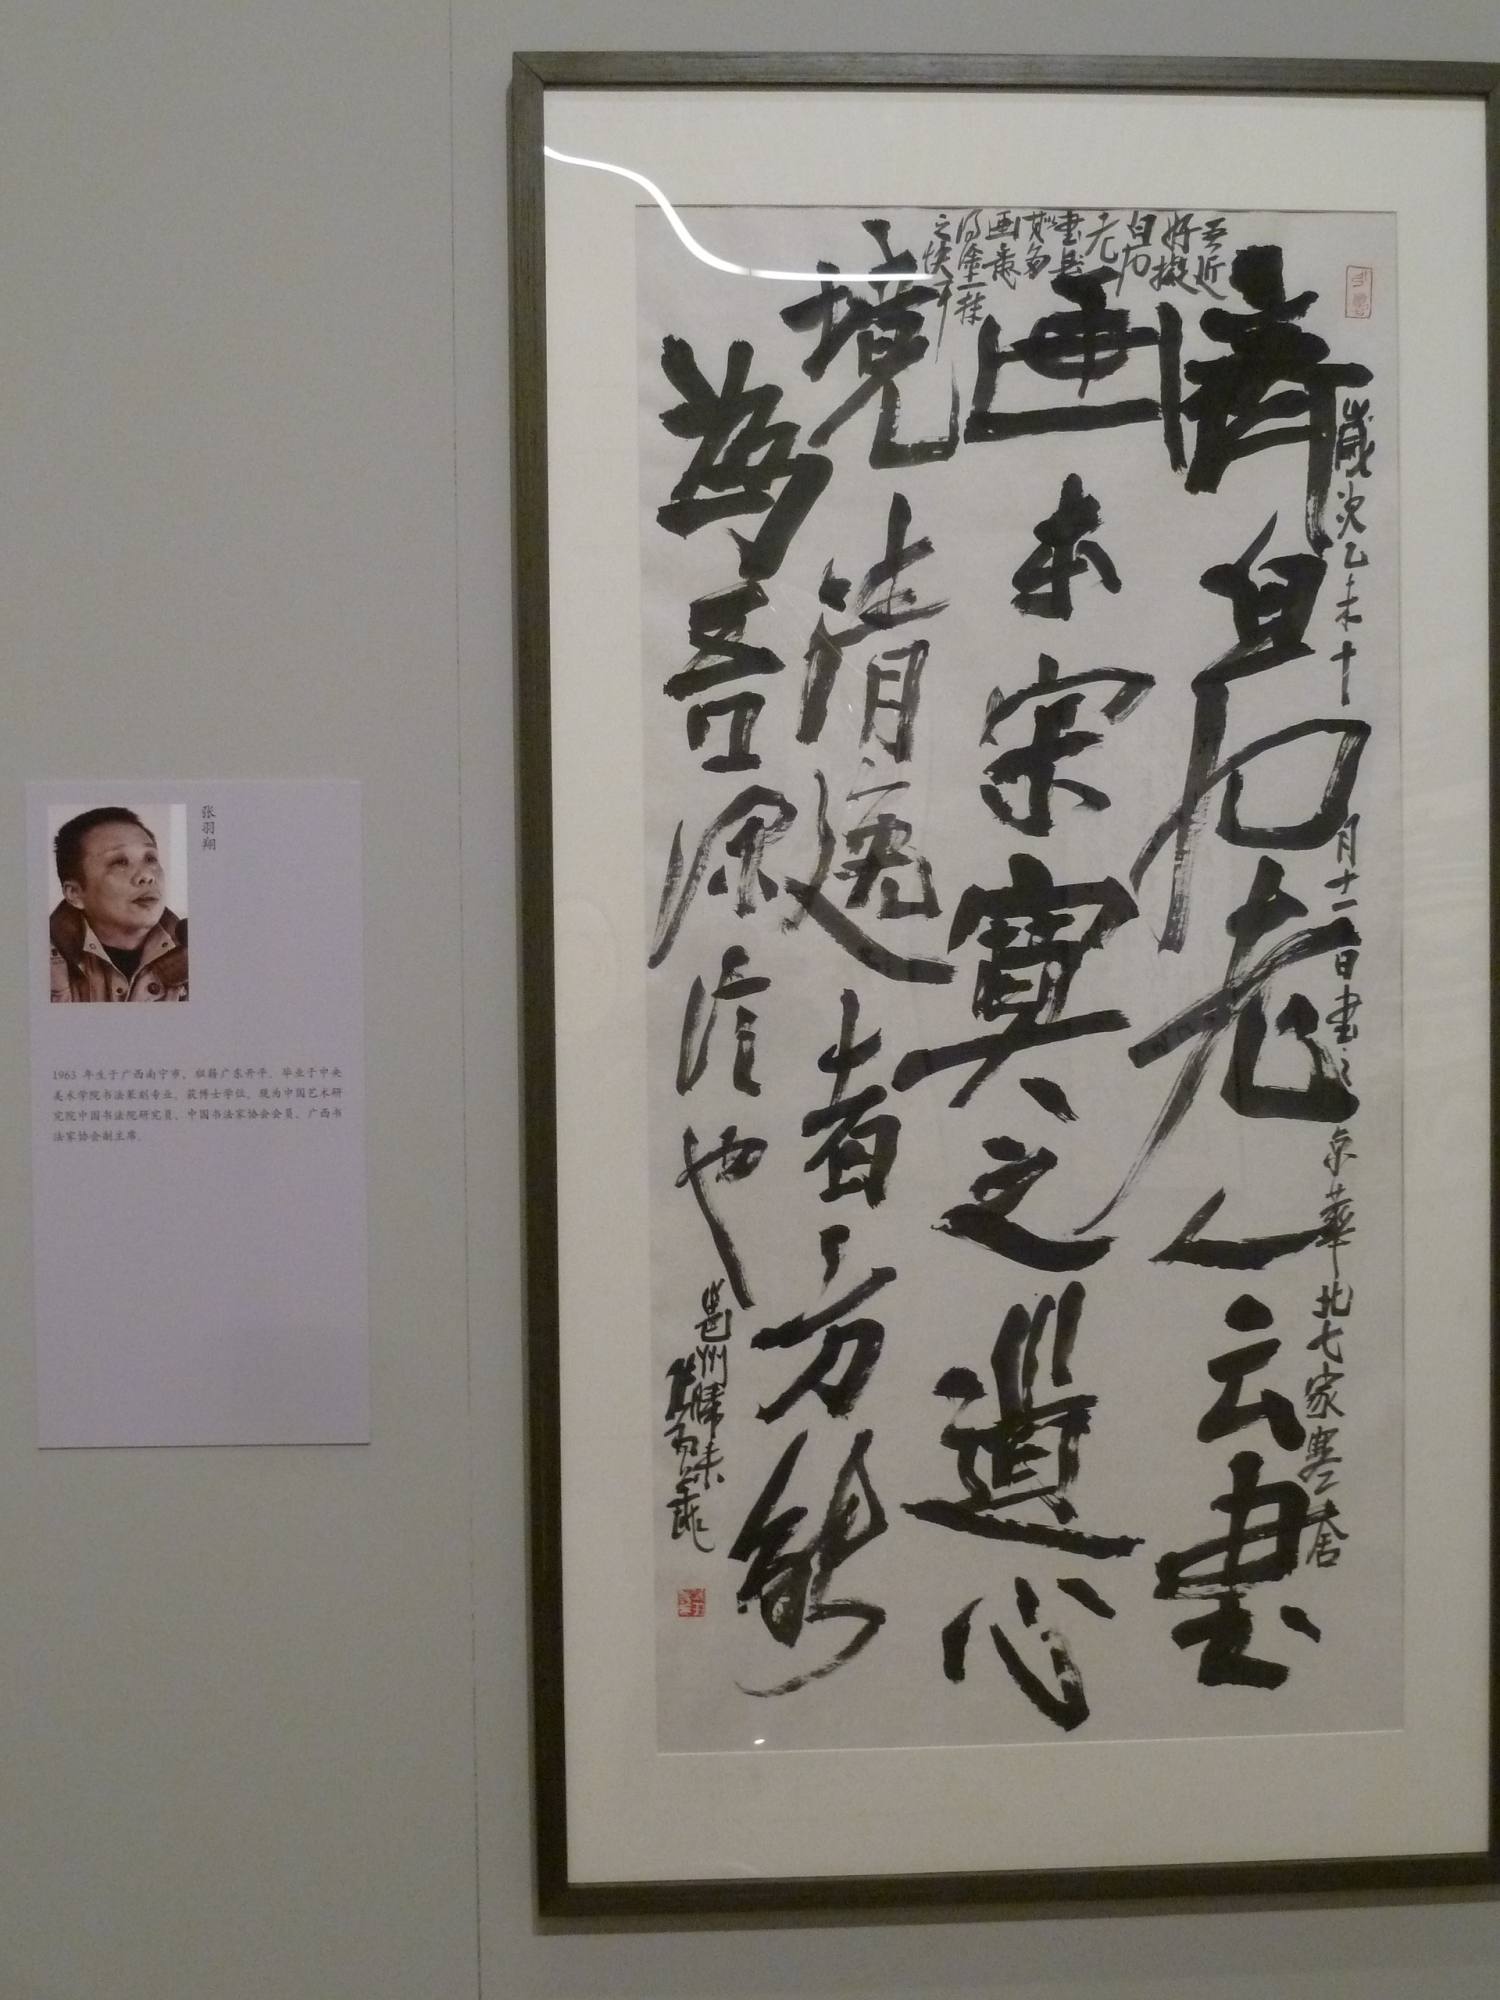 张羽翔
1963 年生于广西南宁市，祖籍广东开平。毕业于中央
美术学院书法篆刻专业，获博士学位。现为中国艺术研
究院中国书法院研究员、中国书法家协会会员、广西书
法家协会副主席。
齊白石老人云書
画本宋寞之道心
境清逸者方能
為吾深信也
吾近
好擬
白石
老
書具
画意
之快
歲次乙未十月十二日書之京華北七家寒舍
邕州